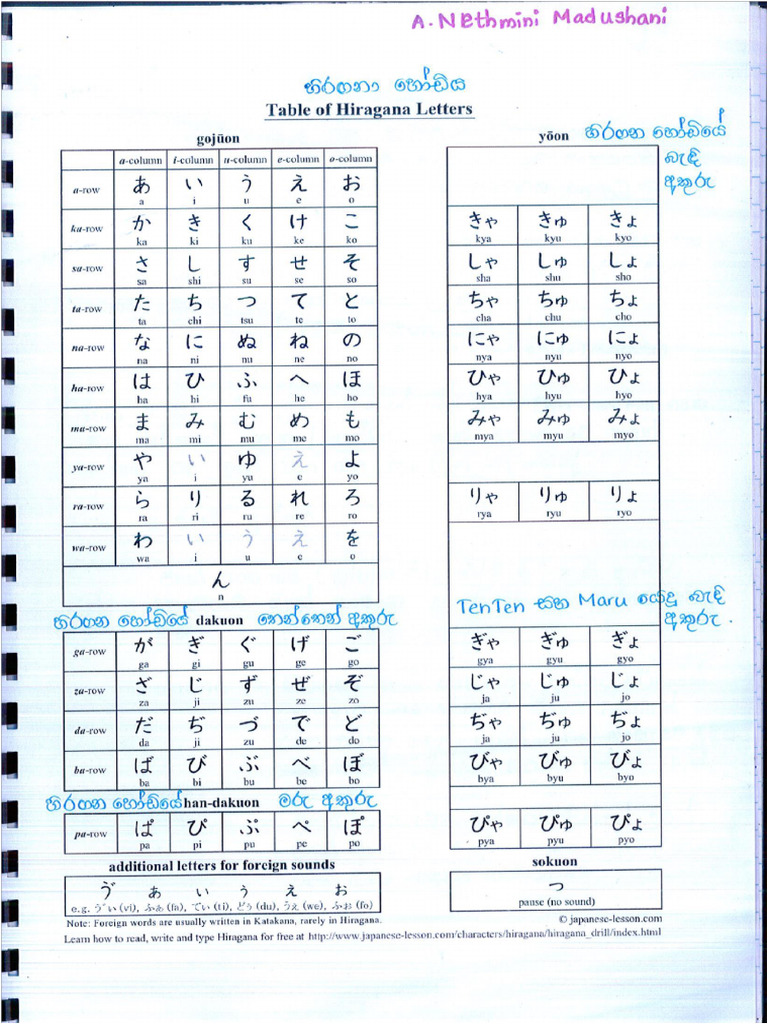 A. NEthmini Madushani
හිරගනා හෝඩිය
Table of Hiragana Letters
gojūon
a-column i-column u-column e-column o-column
a-row あ い う え お
a i u e o
ka-row か き く け こ
ka ki ku ke ko
sa-row さ し す せ そ
sa shi su se so
ta-row た ち つ て と
ta chi tsu te to
na-row な に ぬ ね の
na ni nu ne no
ha-row は ひ ふ へ ほ
ha hi fu he ho
ma-row ま み む め も
ma mi mu me mo
ya-row や い ゆ え よ
ya i yu e yo
ra-row ら り る れ ろ
ra ri ru re ro
wa-row わ い う え を
wa i u e o
ん
n
හිරගන හෝඩියේ dakuon තෙන්තෙන් අකුරු
ga-row が ぎ ぐ げ ご
ga gi gu ge go
za-row ざ じ ず ぜ ぞ
za ji zu ze zo
da-row だ ぢ づ で ど
da ji zu de do
ba-row ば び ぶ べ ぼ
ba bi bu be bo
හිරගන හෝඩියේ han-dakuon මරු අකුරු
pa-row ぱ ぴ ぷ ぺ ぽ
pa pi pu pe po
additional letters for foreign sounds
ゔ ぁ ぃ ぅ ぇ ぉ
e.g. ゔぃ (vi), ふぁ (fa), てぃ (ti), どぅ (du), うぇ (we), ふぉ (fo)
Note: Foreign words are usually written in Katakana, rarely in Hiragana.
yōon හිරගන හෝඩියේ
බැඳි
අකුරු
きゃ きゅ きょ
kya kyu kyo
しゃ しゅ しょ
sha shu sho
ちゃ ちゅ ちょ
cha chu cho
にゃ にゅ にょ
nya nyu nyo
ひゃ ひゅ ひょ
hya hyu hyo
みゃ みゅ みょ
mya myu myo
りゃ りゅ りょ
rya ryu ryo
TenTen සහ Maru යෙදූ බැඳි
අකුරු .
ぎゃ ぎゅ ぎょ
gya gyu gyo
じゃ じゅ じょ
ja ju jo
ぢゃ ぢゅ ぢょ
ja ju jo
びゃ びゅ びょ
bya byu byo
ぴゃ ぴゅ ぴょ
pya pyu pyo
sokuon
っ
pause (no sound)
© japanese-lesson.com
Learn how to read, write and type Hiragana for free at http://www.japanese-lesson.com/characters/hiragana/hiragana_drill/index.html